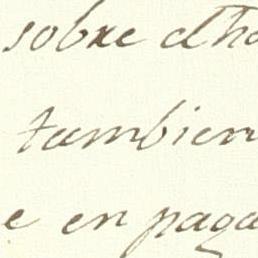 sobre el ha
tambien
e en paga